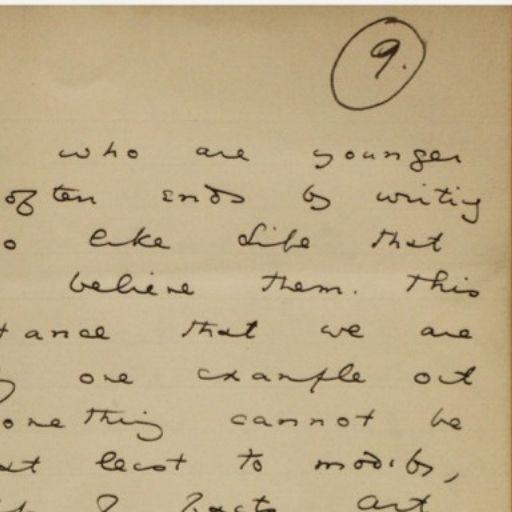 9.
who are younger
often ends by writing
o like life that
believe them. This
tance that we are
one example out
omething cannot be
at least to modify,
facts Art